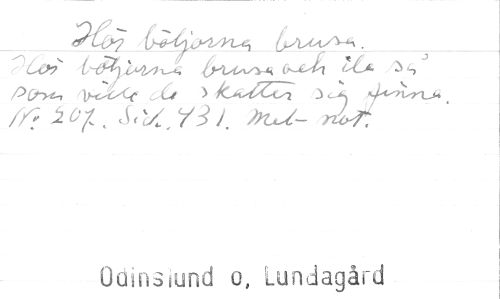 Hör böljorna brusa.
Hör böljorna brusa och ila så
som ville de skatter sig finna.
No 207. Sid. 431. Mel- not.
Odinslund o, Lundagård